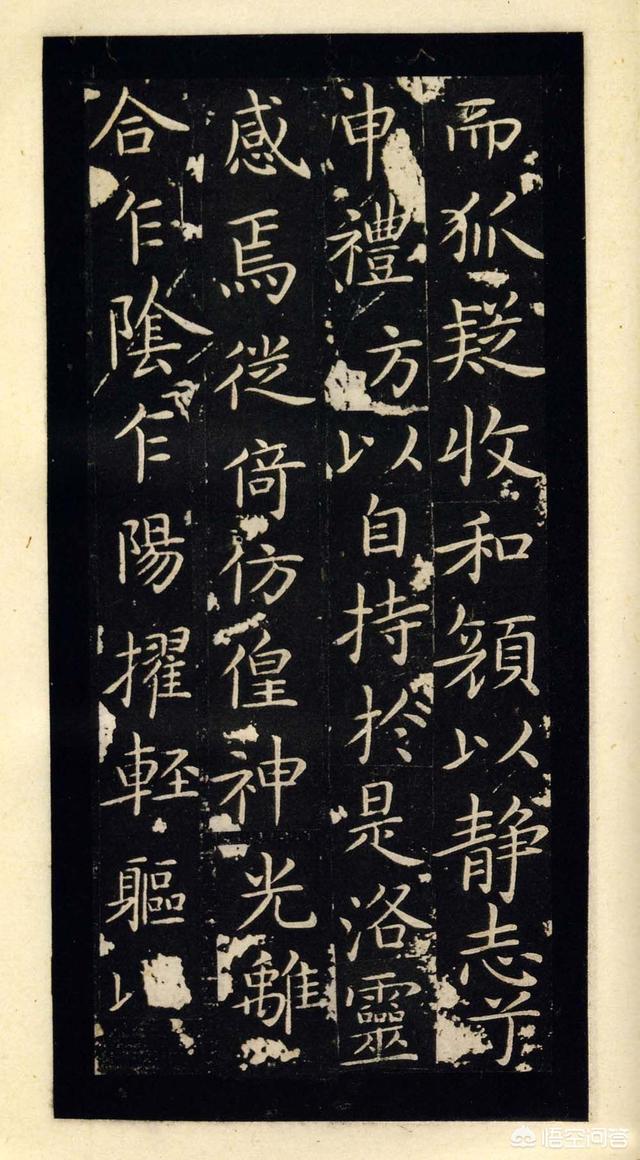 而狐疑收和顔以静志兮
申禮方以自持於是洛靈
感焉徙倚仿偟神光離
合乍陰乍陽擢軽軀以
悟空问答